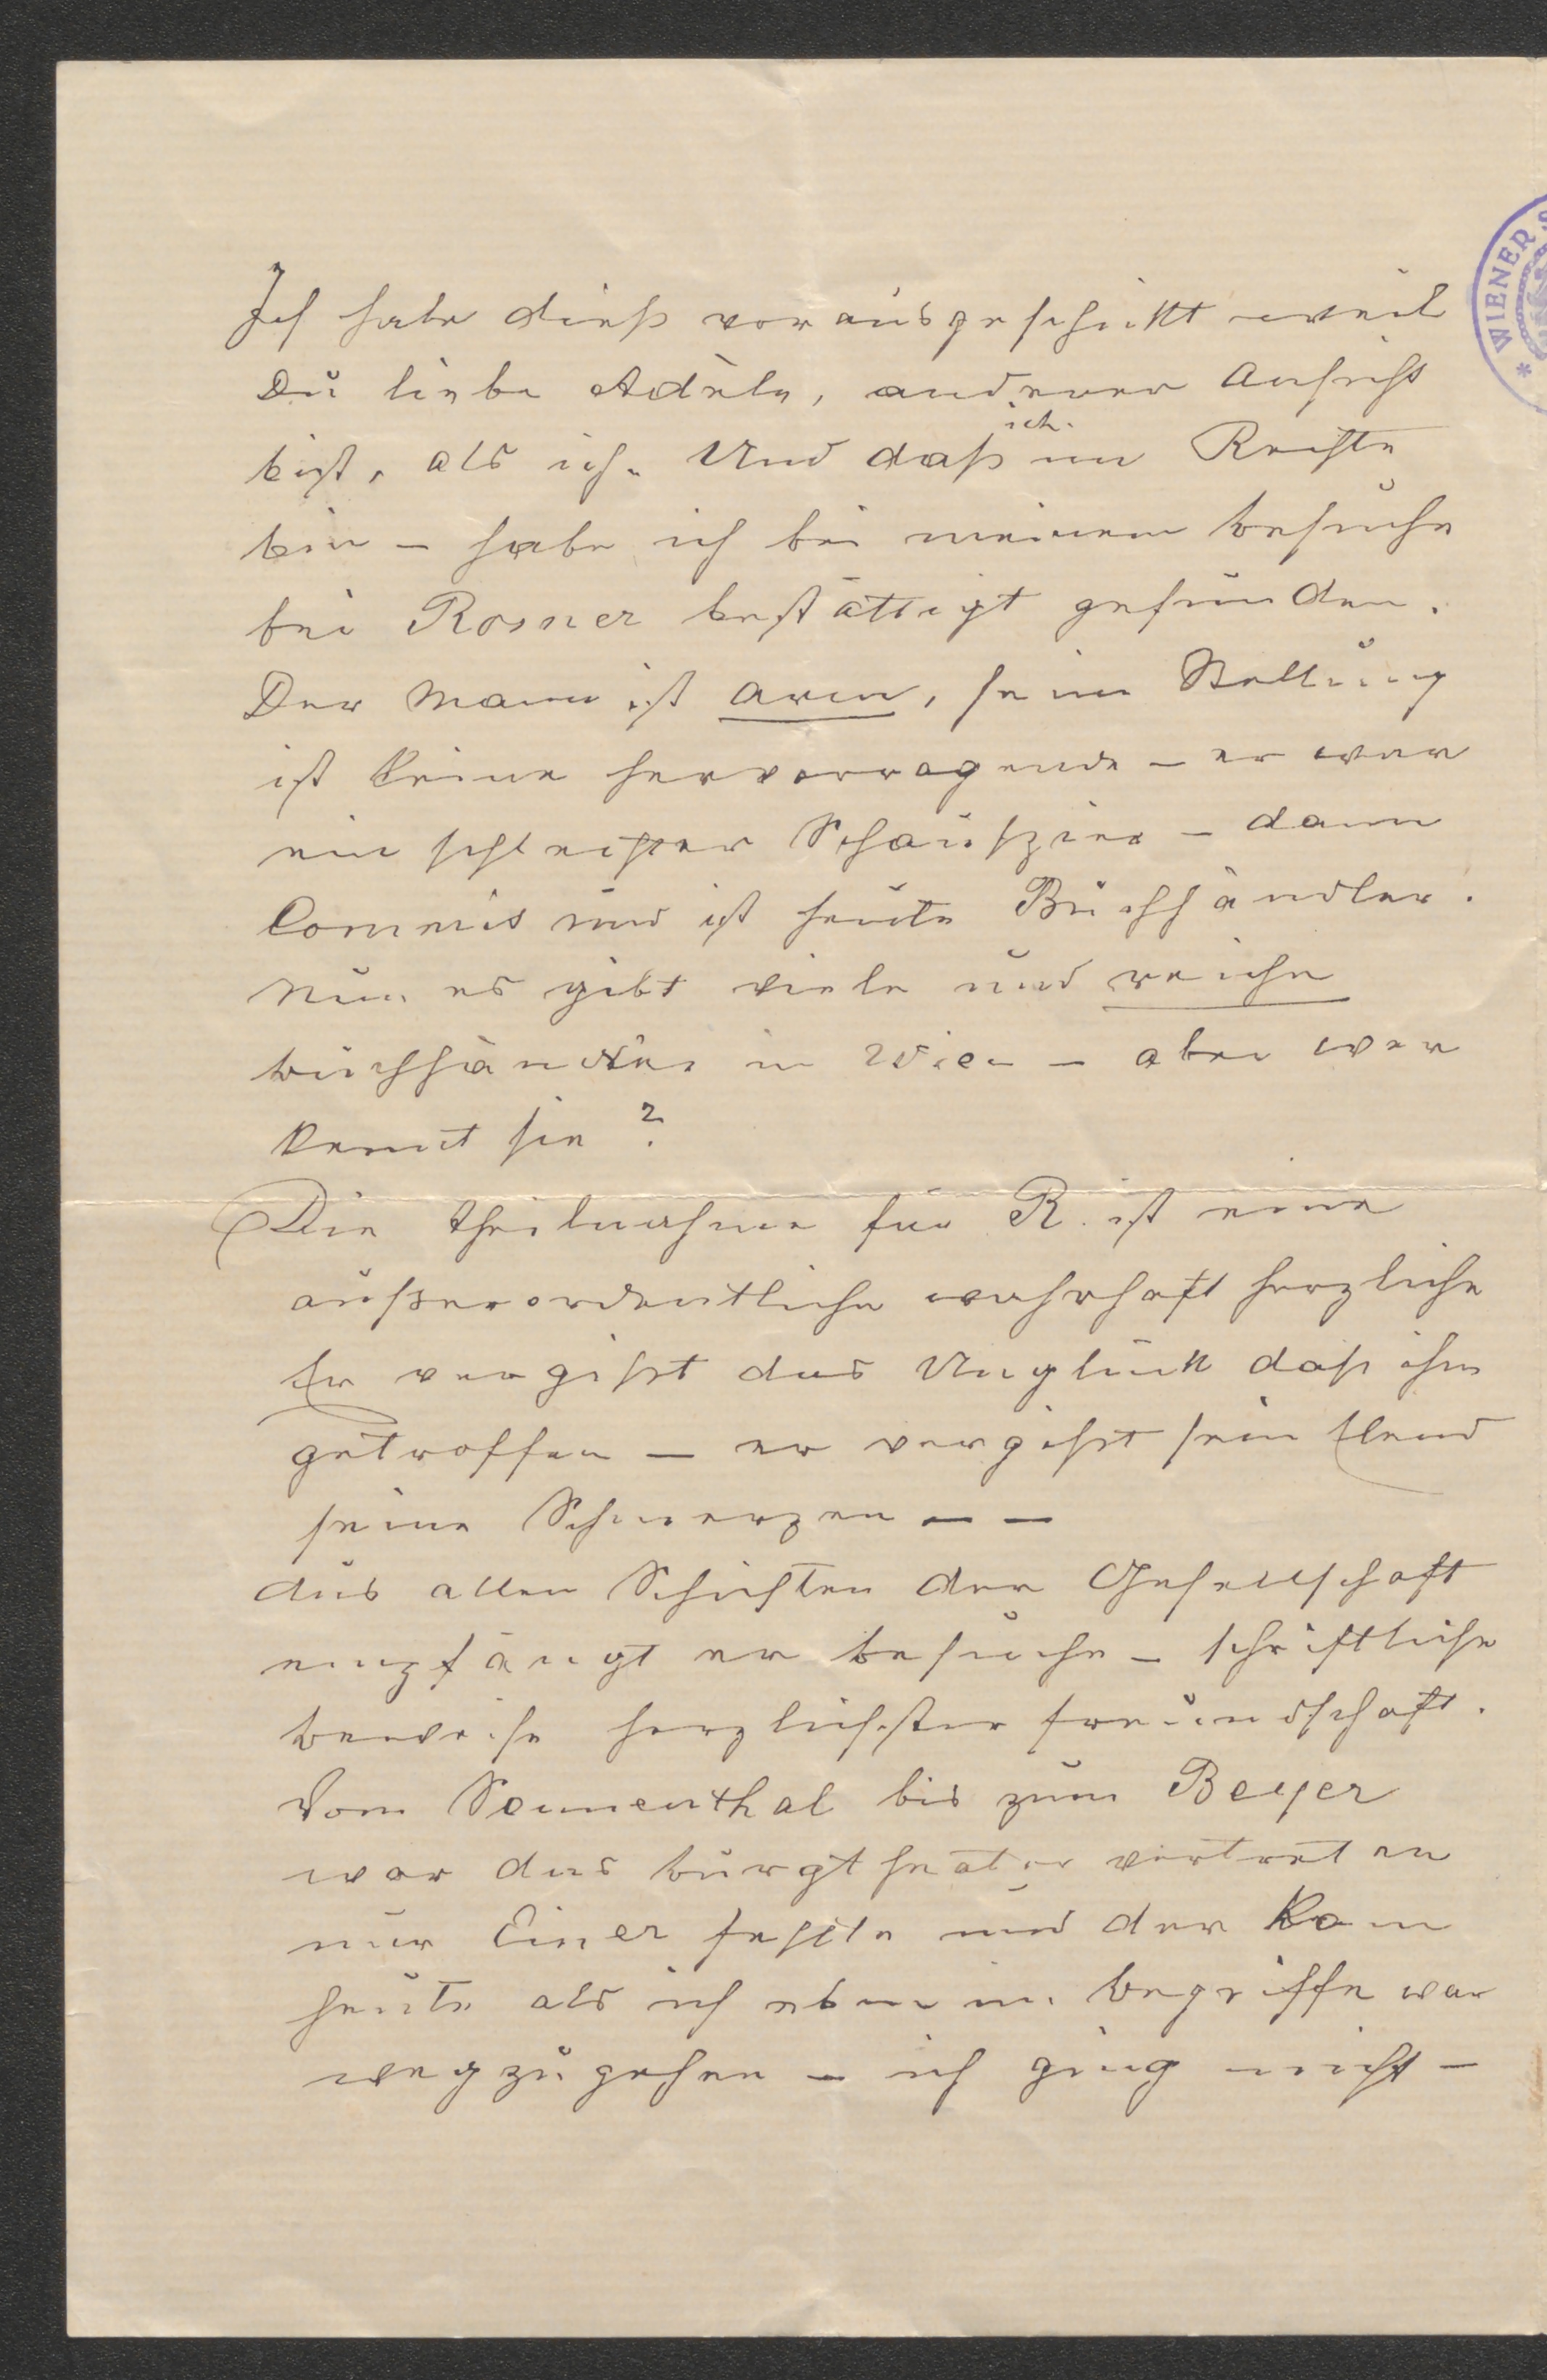 Ich habe dieß vorausgeschickt weil
Du liebe Adèle, anderer Ansicht
bist, als ich. Und daß ich im Rechte
bin – habe ich bei meinem Besuche
bei Rosner bestättigt gefunden.
Der Mann ist arm, seine Stellung
ist keine hervorragende – er war
ein schlechter Schauspieler – dann
Commis und ist heute Buchhändler.
Nun es gibt viele und reiche
Buchhändler in Wien – aber wer
kennt sie?
Die Theilnahme für R. ist eine
außerordentliche wahrhaft herzliche
Er vergißt das Unglück daß ihn
getroffen – er vergißt sein Elend
seine Schmerzen – –
Aus allen Schichten der Gesellschaft
empfängt er Besuche – schriftliche
Beweise herzlichster Freundschaft.
Vom Sonnenthal bis zum Beyer
war das Burgtheater vertreten
nur Einer fehlte und der kam
heute als ich eben im Begriffe war
wegzugehen – ich ging nicht –
WIENER